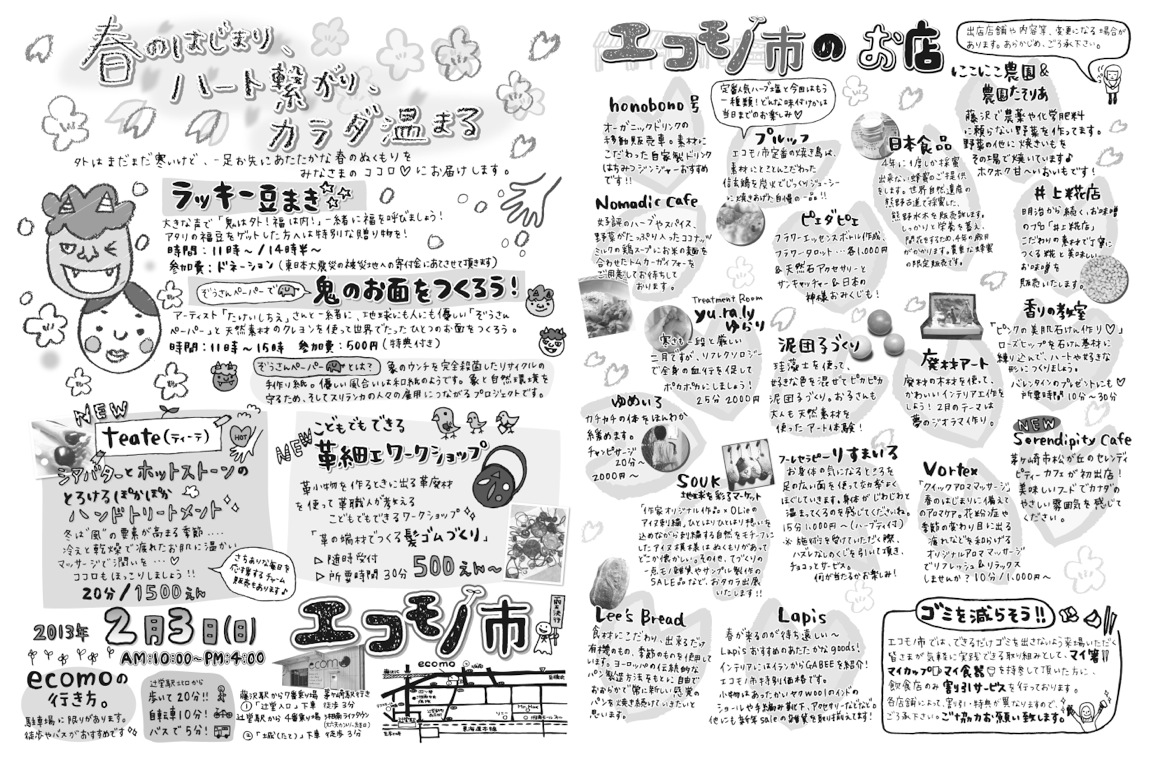 春のはじまり、
ハート繋がり、
カラダ温まる
外はまだまだ寒いけど、一足お先にあたたかな春のぬくもりを
みなさまのココロ♡にお届けします。
ラッキー豆まき☆☆
大きな声で「鬼は外!福は内!」一緒に福を呼びましょう!
アタリの福豆をゲットした方には特別な贈り物を!
時間:11時~/14時半~
参加費:ドネーション(東日本大震災の被災地への寄付金にあてさせて頂きます)
ぞうさんペーパーで
鬼のお面をつくろう!
アーティスト「たけいしちえ」さんと一緒に、地球にも人にも優しい「ぞうさん
ペーパー」と天然素材のクレヨンを使って世界でたったひとつのお面をつくろう。
時間:11時~15時 参加費:500円(特典付き)
ぞうさんペーパーとは?
象のウンチを完全殺菌したリサイクルの
手作り紙。優しい風合いは和紙のようです。象と自然環境を
守るため、そしてスリランカの人々の雇用につながるプロジェクトです。
NEW
teate(ティーテ)
HOT
シアバターとホットストーンの
とろけるぽかぽか
ハンドトリートメント
冬は"風"の要素が高まる季節....
冷えと乾燥で疲れたお肌に温かい
マッサージで潤いを...♡
ココロもほっこりしましょ!!
20分/1500えん
さちありな毎日を
応援するチャーム
販売もあります♪
NEW
こどもでもできる
革細工ワークショップ
革小物を作るときに出る革廃材
を使って革職人が考える
こどもでもできるワークショップ
「革の端材でつくる髪ゴムづくり」
▷随時受付
▷所要時間30分
500えん~
2013年 2月3日(日)
AM:10:00~PM:4:00
エコモノ市
雨天決行
ecomoの
行き方。
駐車場に限りがあります。
徒歩やバスがおすすめです
辻堂駅北口から
歩いて20分!!
自転車10分!
バスで5分!
ecomo
藤沢駅から7番乗り場 茅ヶ崎駅行き
①「辻堂入口」下車 徒歩3分
辻堂駅から4番乗り場
②「土城(たて)」下車 徒歩3分
ecomo
東海道本線
エコモノ市のお店
出店店舗や内容等、変更になる場合が
あります。あらかじめ、ご了承下さい。
honobono号
オーガニックドリンクの
移動販売車。素材に
こだわった自家製ドリンク
はちみつジンジャーおすすめ
です!!
定番人気ハーブ塩と今回はもう
一種類!どんな味付けかは
当日までのお楽しみ♡
プルッフ
エコモノ市定番の焼き鳥は、
素材にとことんこだわった
信玄鶏を炭火でじっくりジューシー
に焼きあげた自慢の一品!!
日本食品
4年に1度しか採蜜
出来ない蜂蜜のご提供
をします。世界自然遺産の
熊野古道で採蜜した、
熊野水木を販売致します。
しっかりと栄養を蓄え、
開花をするため、4年の歳月
がかかります。貴重な蜂蜜
の限定販売です。
にこにこ農園&
農園たそりあ
藤沢で農薬や化学肥料
に頼らない野菜を作ってます。
野菜の他に焼きいもを
その場で焼いています♪
ホクホク甘~いおいもです!
Nomadic Cafe
大好評のハーブやスパイス、
野菜がたっぷり入ったココナッツ
ミルクの鶏スープにお米の麺を
合わせたトムカーガイフォーを
ご用意してお待ちして
おります。
ピェダピェ
フラワーエッセンスボトル作成、
フラワータロット…各1,000円
&天然石アクセサリーと
サンキャッチャー&日本の
神様おみくじも!
井上糀店
明治から続く、お味噌
のプロ「井上糀店」
こだわりの素材で丁寧に
つくる糀と美味しい
お味噌を
販売いたします。
Treatment Room
yu.ra.ly
ゆらり
寒さも一段と厳しい
二月ですが、リフレクソロジー
で全身の血行を促して
ポカポカにしましょう!
25分 2000円
泥団子づくり
珪藻土を使って、
好きな色を混ぜてピカピカ
泥団子づくり。お子さんも
大人も天然素材を
使ったアート体験!
廃材アート
廃材の木材を使って、
かわいいインテリア工作を
しよう!2月のテーマは
夢のジオラマ作り。
香りの教室
「ピンクの美肌石けん作り♡」
ローズヒップを石けん素材に
練り込んで、ハートや好きな
形につくりましょう。
バレンタインのプレゼントにも♡
所要時間10分~30分
ゆめいろ
カチカチの体をほんわか
緩めます。
チャンピサージ
20分~
2000円~
SOUK
地球を彩るマーケット
「作家オリジナル作品×OLieの
アイヌ刺繍」ひとはりひとはり想いを
込めながら刺繍する自然をモチーフに
したアイヌ模様はぬくもりがあって
どこか懐かしい。その他、てづくりの
一点モノ雑貨やサンプル製作の
SALE品など、おタカラ出展
いたします!!
フーレセラピーりすまいる
お身体の気になるところを
足の広い面を使って奥深くまで
ほぐしていきます。身体がじわじわと
温まってくるのを感じてくださいね。
15分1,000円~(ハーブティ付)
※施術を受けていただく際、
ハズレなしのくじを引いて頂き、
チョコっとサービス。
何が当たるかお楽しみ!
Vortex
「クイックアロママッサージ」
春のはじまりに備えて
のアロマケア。花粉症や
季節の変わり目に出る
疲れなどを和らげる
オリジナルアロママッサージ
でリフレッシュ&リラックス
しませんか?10分/1,000円~
NEW
Serendipity Cafe
茅ヶ崎市松が丘のセレンディ
ピティーカフェが初出店!
美味しいフードでカナダの
やさしい雰囲気を感じて
ください。
Lee's Bread
食材にこだわり、出来るだけ
有機のもの、季節のものを使用して
います。ヨーロッパの伝統的な
パン製造方法をもとに、自由で
おおらかで常に新しい感覚の
パンを焼き続けていきたいと
思います。
Lapis
春が来るのが待ち遠しい~
Lapisおすすめのあたたかなgoods!
インテリアにはイランからGABEEを紹介!
エコモノ市特別価格です。
小物はあったかいヤクwoolのインドの
ショールや手編み靴下、アクセサリーなどなど。
他にも新年saleの雑貨を取り揃えてます!
ゴミを減らそう!!
エコモノ市では、できるだけゴミを出さないよう来場いただく
皆さまが気軽に実践できる取り組みとして、マイ箸
マイカップ マイ食器を持参して頂いた方に、
飲食店のみ割り引きサービスを行っております。
各店舗によって、割引・特典が異なりますので、
ご了承下さい。ご協力お願い致します。